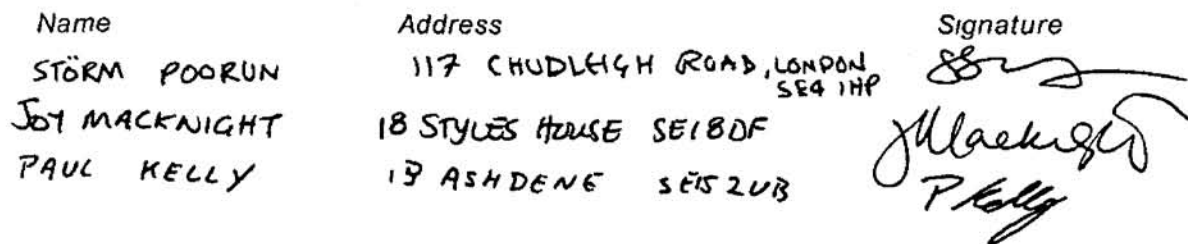 Name Address Signature
STÖRM POORUN 117 CHUDLEIGH ROAD, LONDON
SE4 1HP
JOY MACKNIGHT 18 STYLES HOUSE SE1 8DF JMacknight
PAUL KELLY 13 ASHDENE SE15 2UB P Kelly